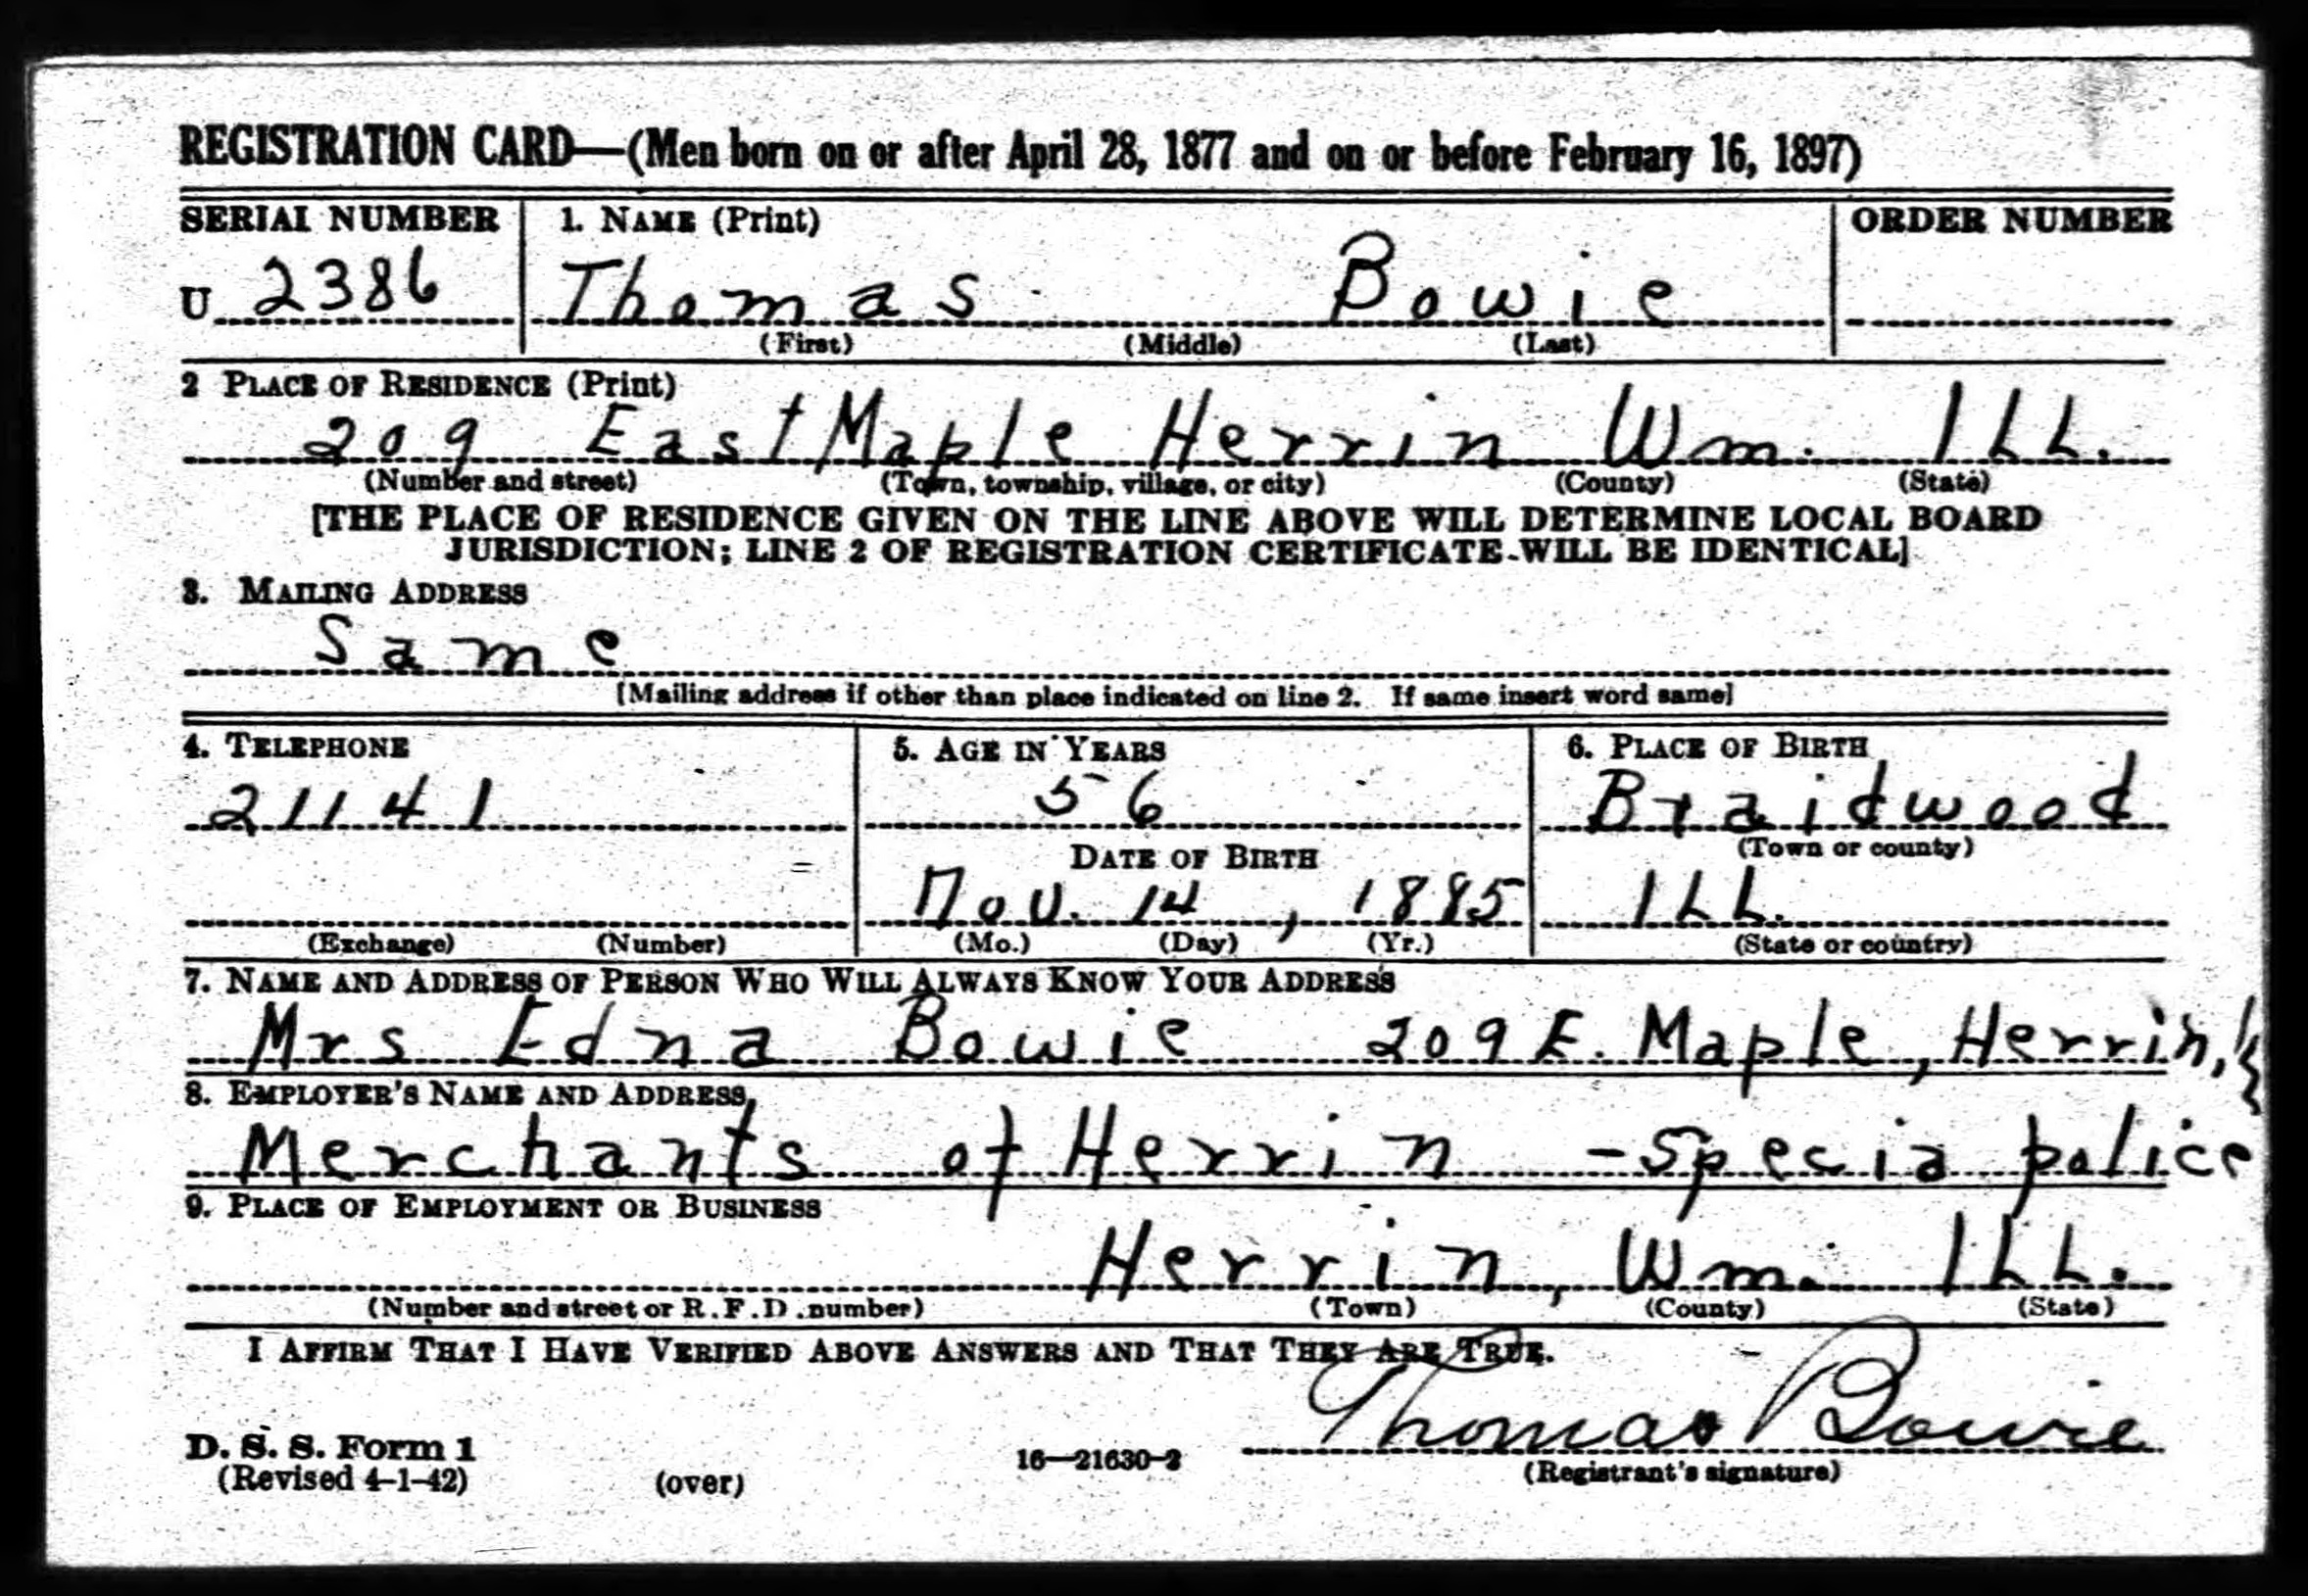 REGISTRATION CARD—(Men born on or after April 28, 1877 and on or before February 16, 1897)
SERIAL NUMBER 1. NAME (Print) ORDER NUMBER
U 2386 Thomas Bowie
(First) (Middle) (Last)
2 PLACE OF RESIDENCE (Print)
209 East Maple Herrin Wm. ILL.
(Number and street) (Town, township, village, or city) (County) (State)
[THE PLACE OF RESIDENCE GIVEN ON THE LINE ABOVE WILL DETERMINE LOCAL BOARD
JURISDICTION; LINE 2 OF REGISTRATION CERTIFICATE WILL BE IDENTICAL]
3. MAILING ADDRESS
Same
[Mailing address if other than place indicated on line 2. If same insert word same]
4. TELEPHONE 5. AGE IN YEARS 6. PLACE OF BIRTH
21141 56 Braidwood
(Town or county)
DATE OF BIRTH
Nov. 14, 1885 ILL.
(Exchange) (Number) (Mo.) (Day) (Yr.) (State or country)
7. NAME AND ADDRESS OF PERSON WHO WILL ALWAYS KNOW YOUR ADDRESS
Mrs Edna Bowie 209 E. Maple, Herrin,
8. EMPLOYER'S NAME AND ADDRESS
Merchants of Herrin - Specia police
9. PLACE OF EMPLOYMENT OR BUSINESS
Herrin, Wm. ILL.
(Number and street or R. F. D. number) (Town) (County) (State)
I AFFIRM THAT I HAVE VERIFIED ABOVE ANSWERS AND THAT THEY ARE TRUE.
Thomas Bowie
D. S. S. Form 1
(Revised 4-1-42) (over) 16—21630-2 (Registrant's signature)